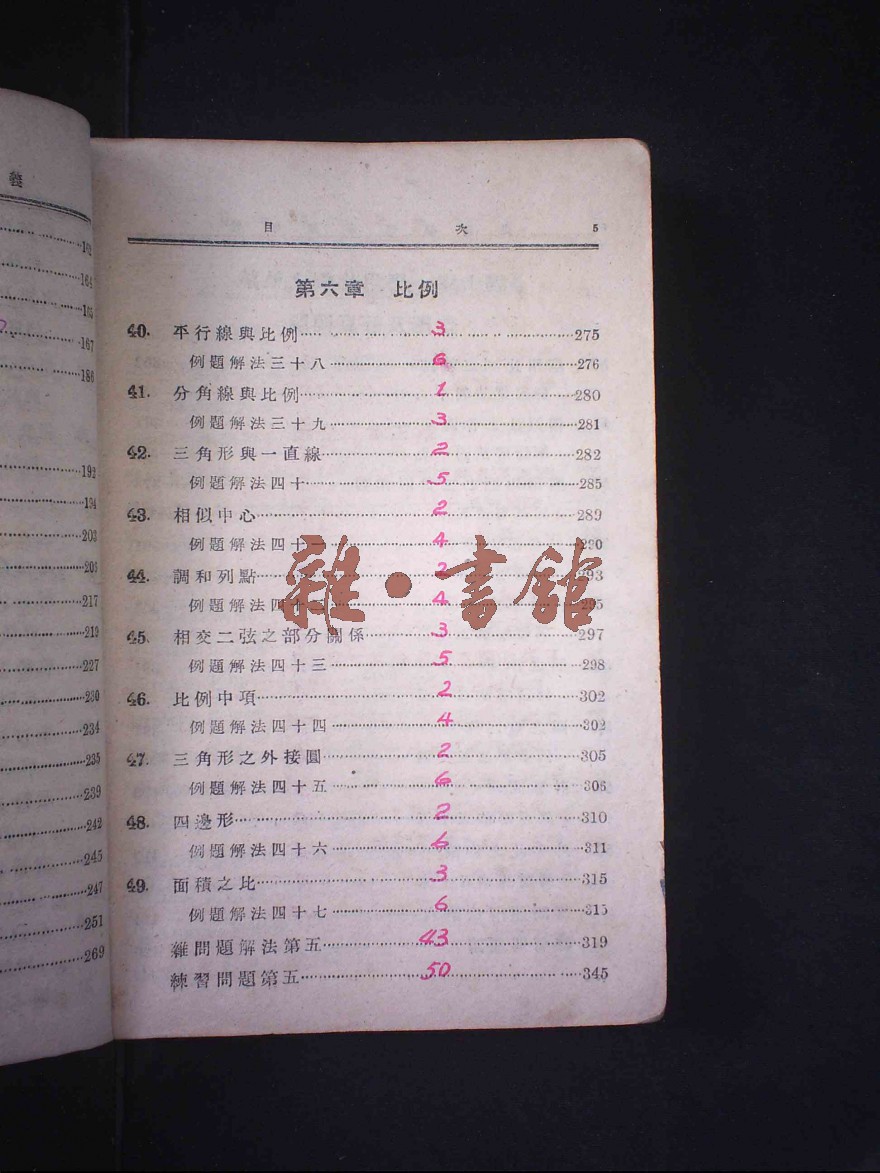 義
162
164
165
167
186
192
194
203
203
217
219
227
230
234
235
239
242
245
247
251
269
目 次 5
第六章 比例
40. 平行線與比例 3 275
例題解法三十八 6 276
41. 分角線與比例 1 280
例題解法三十九 3 281
42. 三角形與一直線 2 282
例題解法四十 5 285
43. 相似中心 2 289
例題解法四十一 4 290
44. 調和列點 2 293
例題解法四十二 4 295
45. 相交二弦之部分關係 3 297
例題解法四十三 5 298
46. 比例中項 2 302
例題解法四十四 4 302
47. 三角形之外接圓 2 305
例題解法四十五 6 306
48. 四邊形 2 310
例題解法四十六 6 311
49. 面積之比 3 315
例題解法四十七 6 315
雜問題解法第五 43 319
練習問題第五 50 345
雜·書館